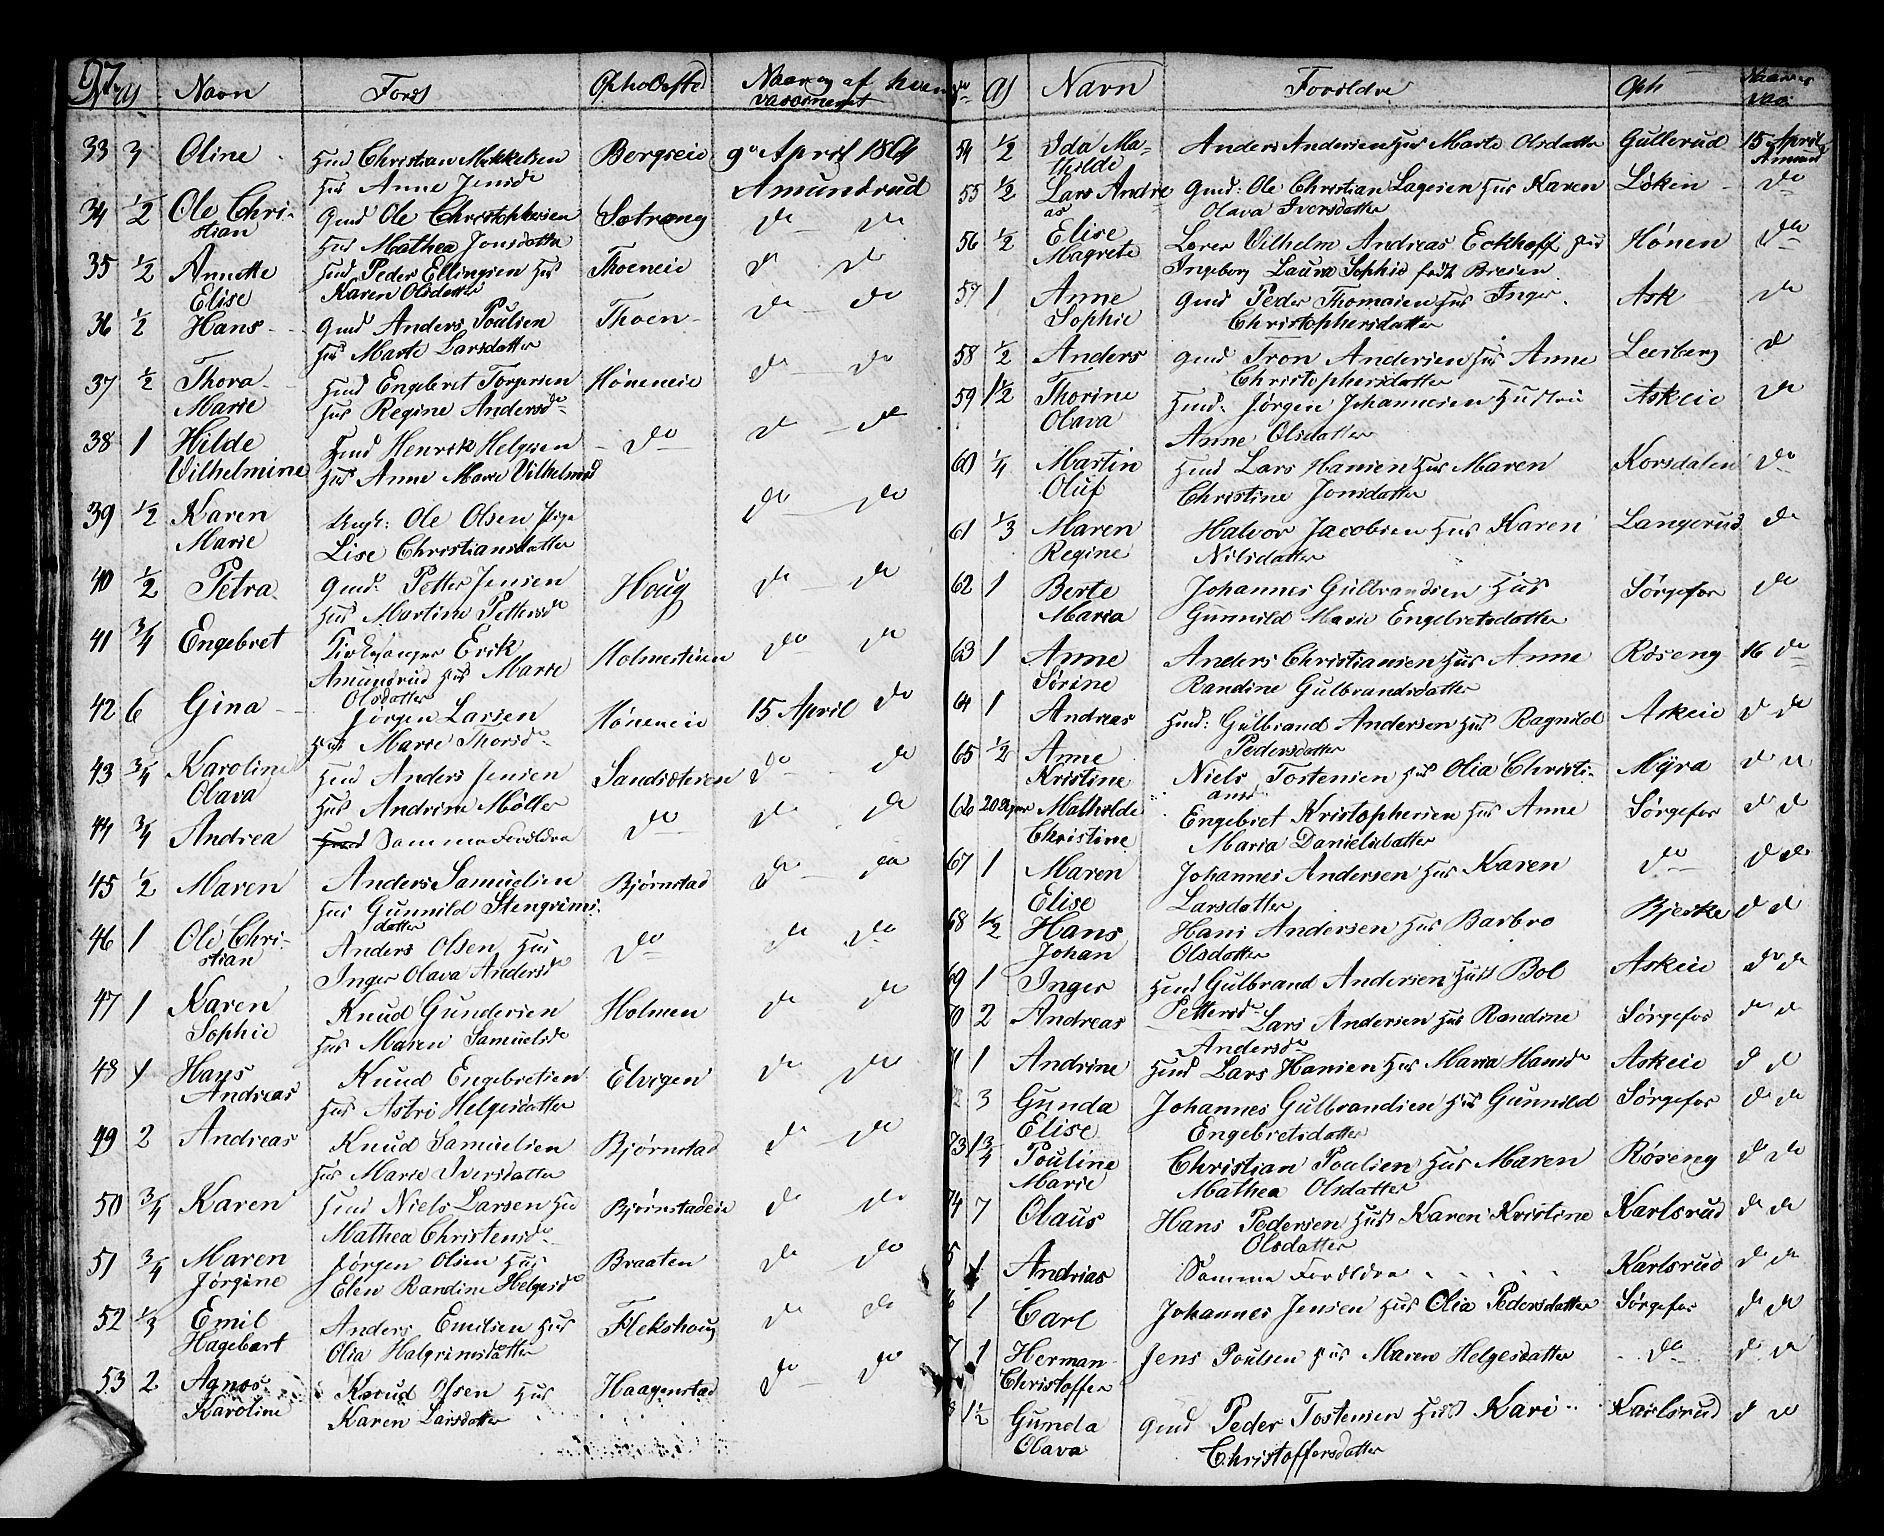 97
Navn Fords Opholdsste Naar og af hvem
vaccineret
33 3 Oline Huusd Christian Mikkelsen Borgseie 9de April 1864
Hus Anne Jensd Amundrud
34 1/2 Ole Chri- Gmd Ole Christophersen Sætrang do do
stian Hus Mathea Jonsdatter
35 1/2 Annette Husd Peder Ellingsen Hus Thoeneie do do
Elise Karen Olsdatter
36 1/2 Hans Gmd Anders Poulsen Thoen do do
Hus Marte Larsdatter
37 1/2 Thora Husd Engebret Torgersen Høneneie do do
Marie Hus Regine Andersd
38 1 Hilde Husd Henrik Helgesen do do do
Vilhelmine Hus Anne Marie Vilhelmsd
39 1/2 Karen Ungk: Ole Olsen Pige do do
Marie Lise Christiansdatter
40 1/2 Petra Gmd Petter Jensen Houg do do
Hus Martine Pettersd
41 3/4 Engebret Erik Holmestuen do do
Amundrud Hus Marie
Olsdatter
42 6 Gina Jørgen Larsen Høneneie 15 April do
Hus Marie Thorsd
43 3/4 Karoline Husd Anders Jensen Sandisteren do do
Olava Hus Andrine Møller
44 3/4 Andrea Samma Forældra do do do
45 1/2 Maren Anders Samuelsen Bjørnstad do do
Hus Gunnild Stengrims
datter
46 1 Ole Chri- Anders Olsen Hus do do do
stian Inger Olava Andersd
47 1 Karen Knud Gundersen Holmen do do
Sophie Hus Maren Samuelsd
48 1 Hans Knud Engebretsen Elvigen do do
Andreas Hus Astri Helgesdatter
49 2 Andreas Knud Samuelsen Bjørnstad do do
Hus Marie Iversdatter
50 3/4 Karen Husd Niels Larsen Hu Bjørnstadeie do do
Mathea Christensd
51 3/4 Maren Jørgen Olsen Hus Braaten do do
Jørgine Elen Randine Helgesd
52 1/3 Emil Anders Emilsen Hus Flekshoug do do
Hagebart Olia Halgrimsdatter
53 2 Agnes Knud Olsen Hus Haagenstad do do
Karoline Karen Larsdatter
Navn Forældre Oph Naar
vac
54 1/2 Ida Ma- Anders Andersen Hus Marte Olsdatter Gullerud 15 April
thilde Amund
55 1/2 Lars Andre Gmd: Ole Christian Lagesen Hus Karen Løken do
as Olava Iversdatter
56 1/2 Elise Lærer Vilhelm Andreas Eckhoff Hus Hønen do
Magrete Ingeborg Laura Sophie født Breien
57 1 Anne Gmd Peder Thomasen Hus Inger Ask do
Sophie Christophersdatter
58 1/2 Anders Gmd Tron Andersen Hus Anne Leerberg do
Christophersdatter
59 1 1/2 Thorine Husd: Jørgen Johannesen Hustru Askeie do
Olava Anne Olsdatter
60 1/4 Martin Husd Lars Hansen Hus Maren Korsdalen do
Oluf Christine Jonsdatter
61 1/3 Maren Halvor Jacobsen Hus Karen Langerud do
Regine Nilsdatter
62 1 Berte Johannes Gulbrandsen Hus Sørgefos do
Maria Gunnild Marie Engebretsdatter
63 1 Anne Anders Christiansen Hus Anne Røseng 16 do
Sørine Randine Gulbrandsdatter
64 1 Andreas Husd: Gulbrand Andersen Hus Ragnild Askeie do do
Pedersdatter
65 1/2 Anne
Kristine Niels Tostensen Hus Olia Christi- Myra do do
ansd
66 20 Uger Mathilde Engebret Kristophersen Hus Anne Sørgefos do do
Christine Maria Danielsdatter
67 1 Maren Johannes Andersen Hus Karen do do do
Elise Larsdatter
68 1/2 Hans Hans Andersen Hus Barbro Bjerke do do
Johan Olsdatter
69 1 Inger Husd Gulbrand Andersen Hust Bol Askeie do do
Pettersd
0 2 Andreas Lars Andersen Hus Randine Sørgefos do do
Andersd
1 1 Andrine Husd Lars Hansen Hus Maria Hansd Askeie do do
2 3 Gunda Johannes Gulbrandsen Hus Gunnild Sørgefos do do
Elise Engebretsdatter
73 1 3/4 Pouline Christian Poulsen Hus Maren Røseng do do
Marie Mathea Olsdatter
74 7 Olaus Hans Pedersen Hust Karen Kristine Karlsrud do do
Olsdatter
5 1 Andrias Samma Forældra Karlsrud do do
6 1 Carl Johannes Jensen Hus Olia Pedersdatter Sørgefos do do
7 1 Herman Jens Poulsen Hus Maren Helgesdatter do do do
Christoffer
8 1 1/2 Gunda Gmd Peder Tostensen Hust Kari Karlsrud do do
Olava Christoffersdatter